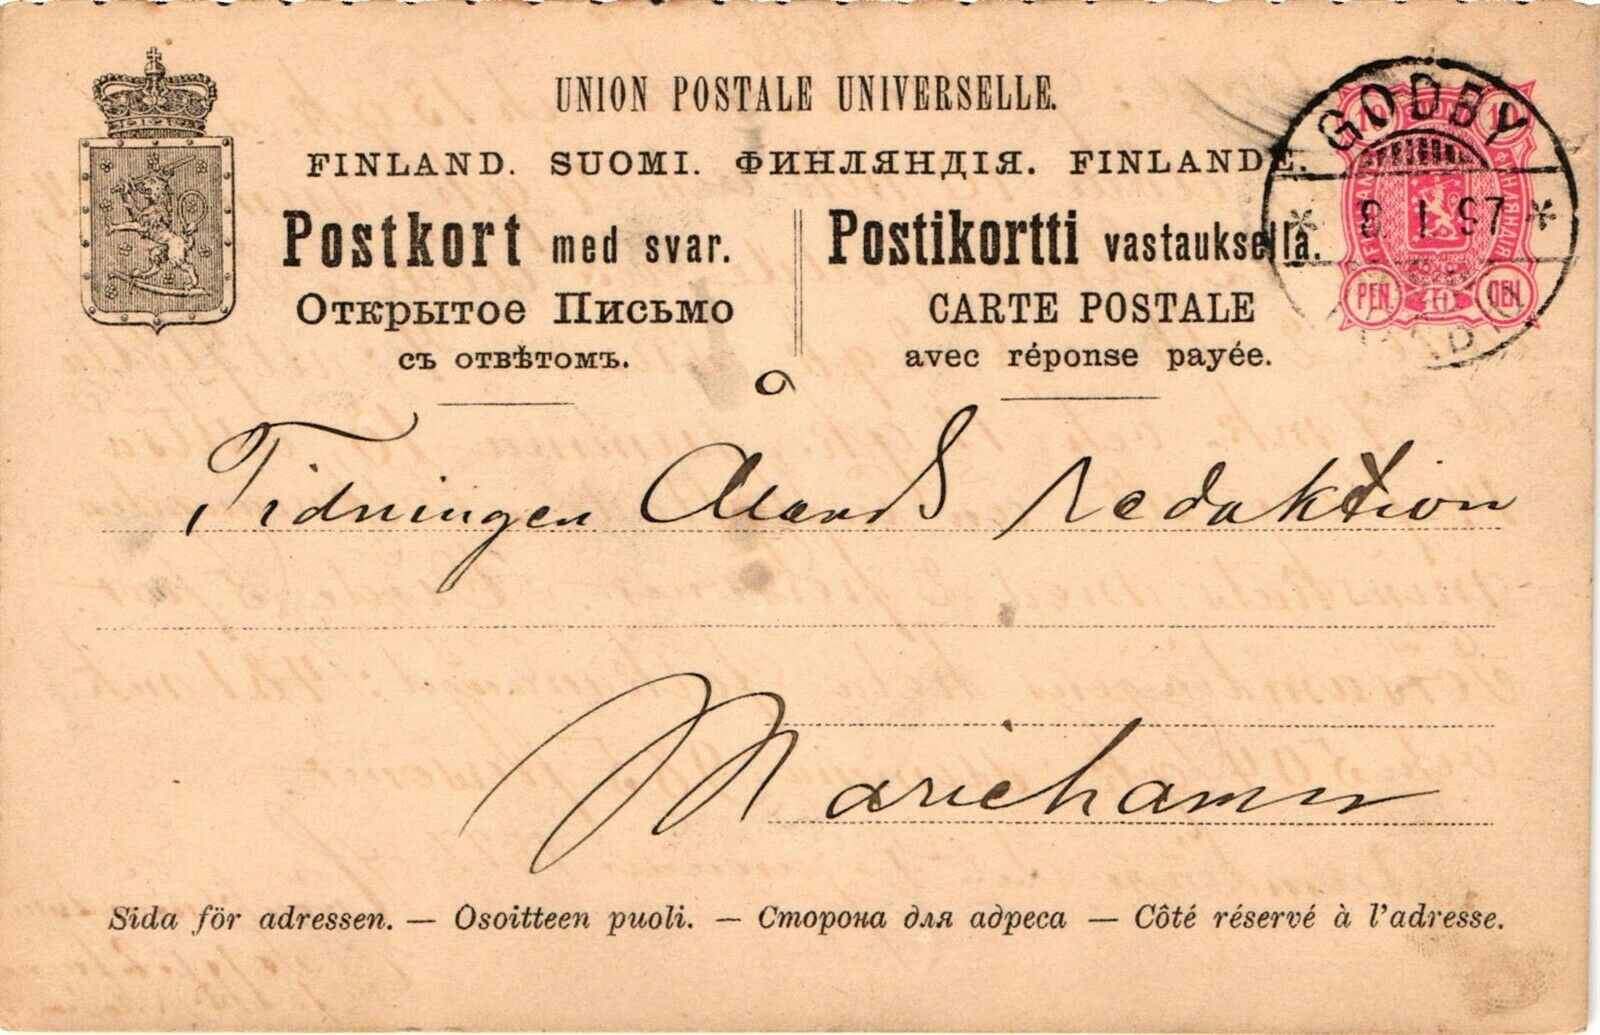 UNION POSTALE UNIVERSELLE.
FINLAND. SUOMI. ФИНЛЯНДІЯ. FINLANDE.
Postkort med svar.
Открытое Письмо
съ отвѣтомъ.
Postikortti vastauksella.
CARTE POSTALE
avec réponse payée.
GODBY
8. I. 97
10 10
PEN. 10 ПЕН.
Tidningen Ålands redaktion
Mariehamn
Sida för adressen. — Osoitteen puoli. — Сторона для адреса — Côté réservé à l'adresse.